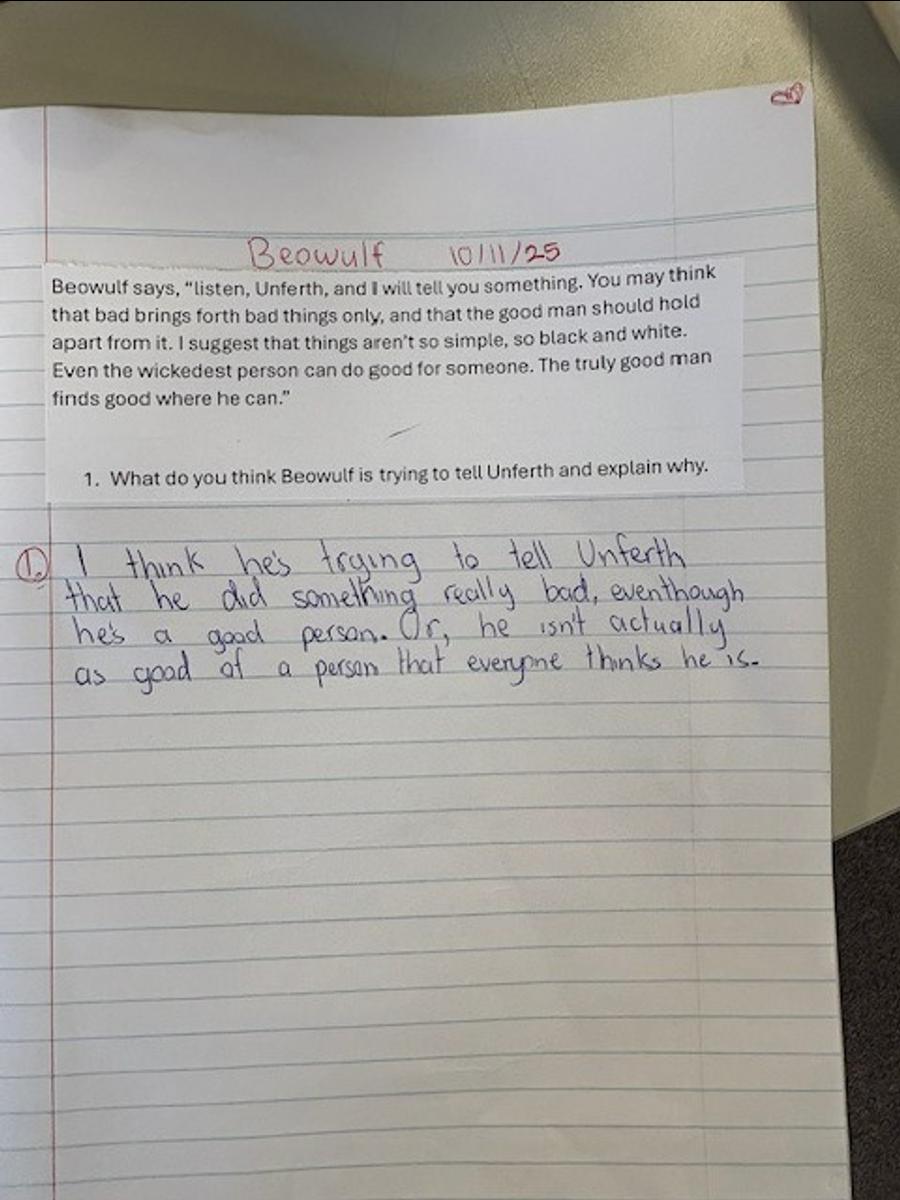 Beowulf 10/11/25
Beowulf says, “listen, Unferth, and I will tell you something. You may think
that bad brings forth bad things only, and that the good man should hold
apart from it. I suggest that things aren’t so simple, so black and white.
Even the wickedest person can do good for someone. The truly good man
finds good where he can.”
1. What do you think Beowulf is trying to tell Unferth and explain why.
1. I think he's trying to tell Unferth
that he did something really bad, eventhough
he's a good person. Or, he isn't actually
as good of a person that everyone thinks he is.